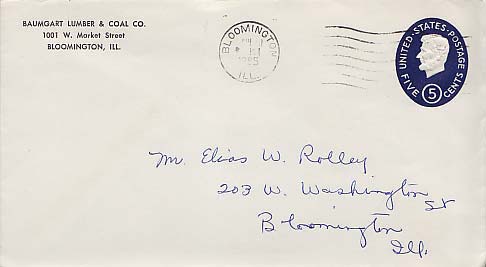 BAUMGART LUMBER & COAL CO.
1001 W. Market Street
BLOOMINGTON, ILL.
BLOOMINGTON
PM
1965
ILL.
UNITED·STATES·POSTAGE
FIVE 5 CENTS
Mr. Elias W. Rolley
203 W. Washington
St
Bloomington
Ill.